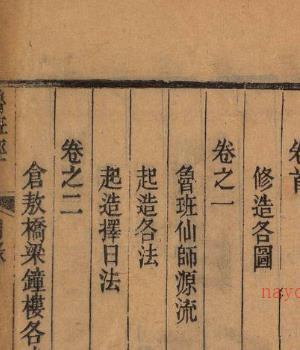 卷首
修造各圖
卷之一
魯班仙師源流
起造各法
起造擇日法
卷之二
倉敖橋梁鐘樓各
魯班經
目录
nayo